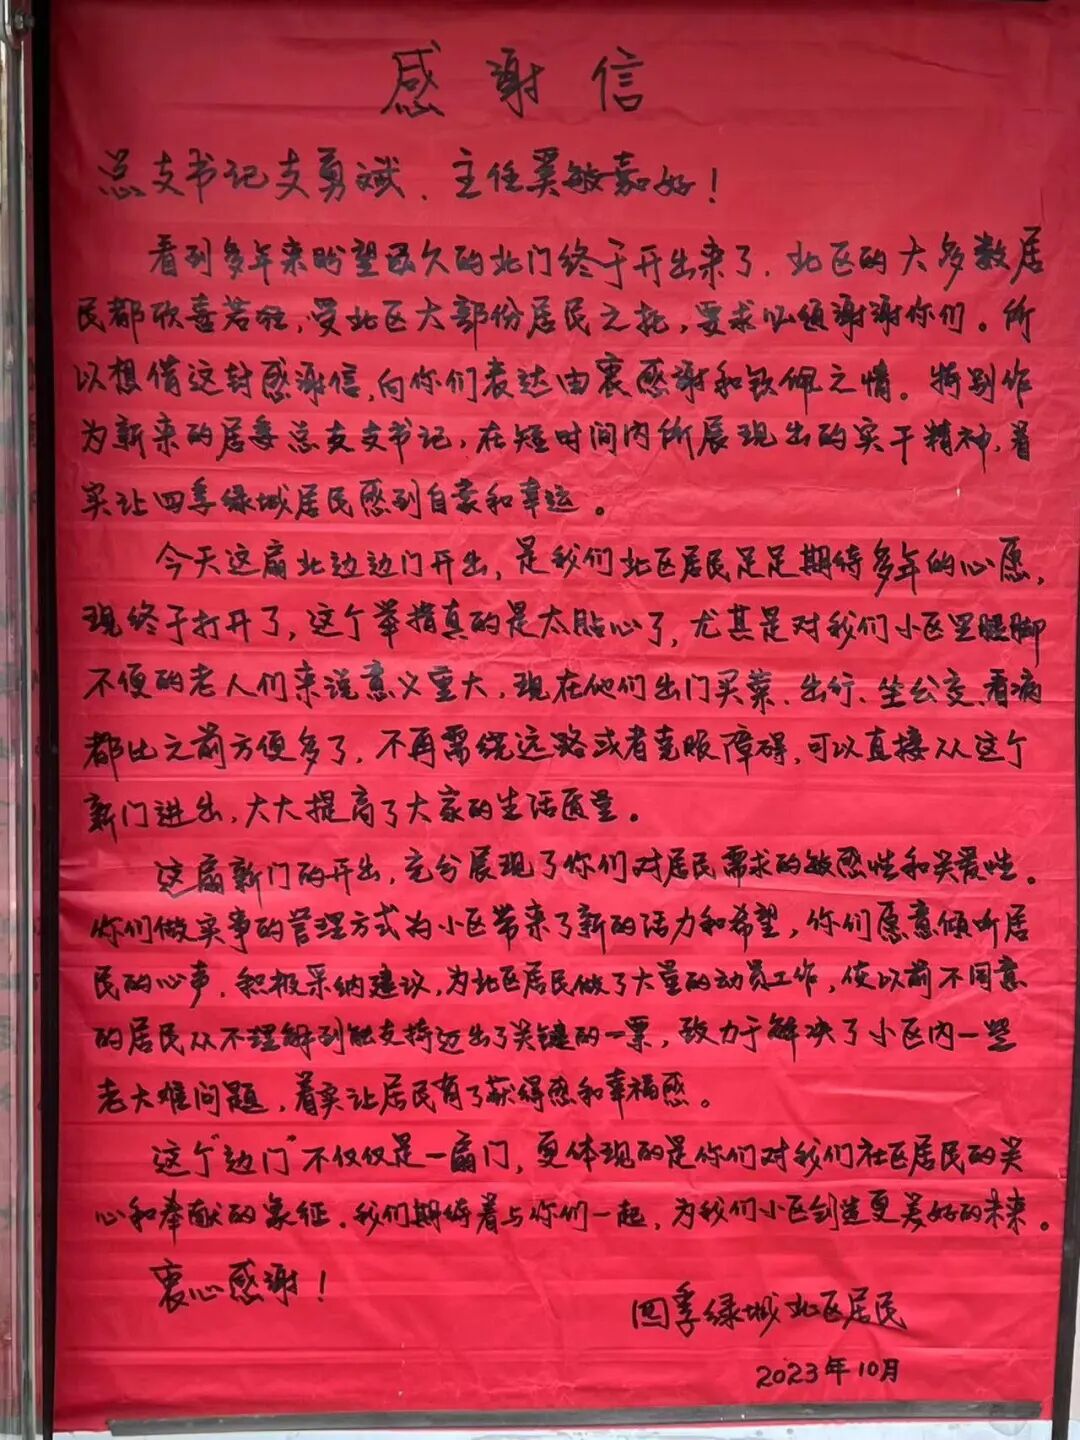 感谢信
总支书记支勇斌、主任奚敏嘉好！
看到多年来盼望已久的北门终于开出来了，北区的大多数居
民都欣喜若狂，受北区大部份居民之托，要求必须谢谢你们。所
以想借这封感谢信，向你们表达由衷感谢和钦佩之情。特别作
为新来的居委总支支书记，在短时间内所展现出的实干精神，着
实让四季绿城居民感到自豪和幸运。
今天这扇北边边门开出，是我们北区居民足足期待多年的心愿，
现终于打开了，这个举措真的是太贴心了，尤其是对我们小区里腿脚
不便的老人们来说意义重大，现在他们出门买菜、出行、坐公交、看病
都比之前方便多了，不再需绕远路或者克服障碍，可以直接从这个
新门进出，大大提高了大家的生活质量。
这扇新门的开出，充分展现了你们对居民需求的敏感性和关爱性。
你们做实事的管理方式为小区带来了新的活力和希望，你们愿意倾听居
民的心声，积极采纳建议，为北区居民做了大量的动员工作，使以前不同意
的居民从不理解到能支持迈出了关键的一票，致力于解决了小区内一些
老大难问题，着实让居民有了获得感和幸福感。
这个“边门”不仅仅是一扇门，更体现的是你们对我们社区居民的关
心和奉献的象征，我们期待着与你们一起，为我们小区创造更美好的未来。
衷心感谢！
四季绿城北区居民
2023年10月